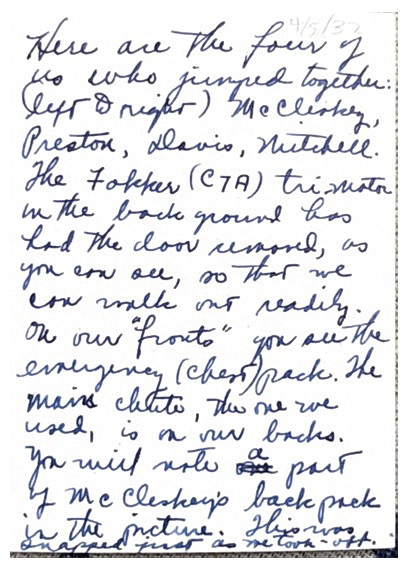 4/5/32
Here are the four of
us who jumped together:
(left to right) McCleskey,
Preston, Davis, Mitchell.
The Fokker (C7A) tri-motor
in the back ground has
had the door removed, as
you can see, so that we
can walk out readily.
On our "fronts" you see the
emergency (chest) pack. The
main chute, the one we
used, is on our backs.
You will note a part
of McCleskey's back pack
in the picture. This was
snapped just as we took-off.